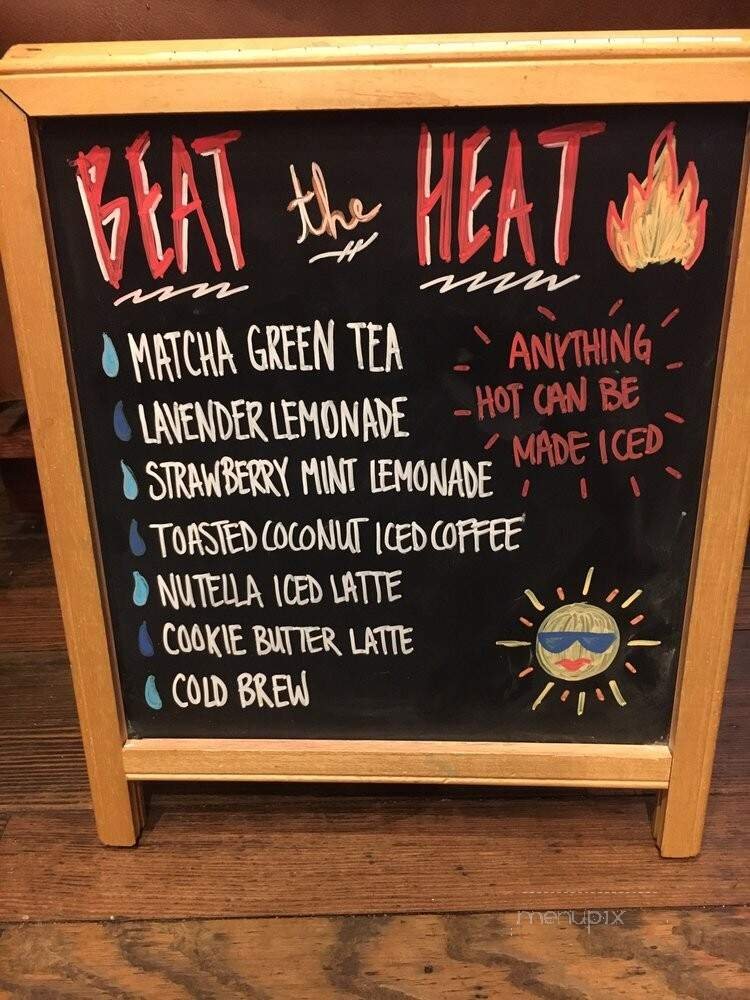 BEAT the HEAT
MATCHA GREEN TEA
LAVENDER LEMONADE
STRAWBERRY MINT LEMONADE
TOASTED COCONUT ICED COFFEE
NUTELLA ICED LATTE
COOKIE BUTTER LATTE
COLD BREW
ANYTHING
HOT CAN BE
MADE ICED
menupix